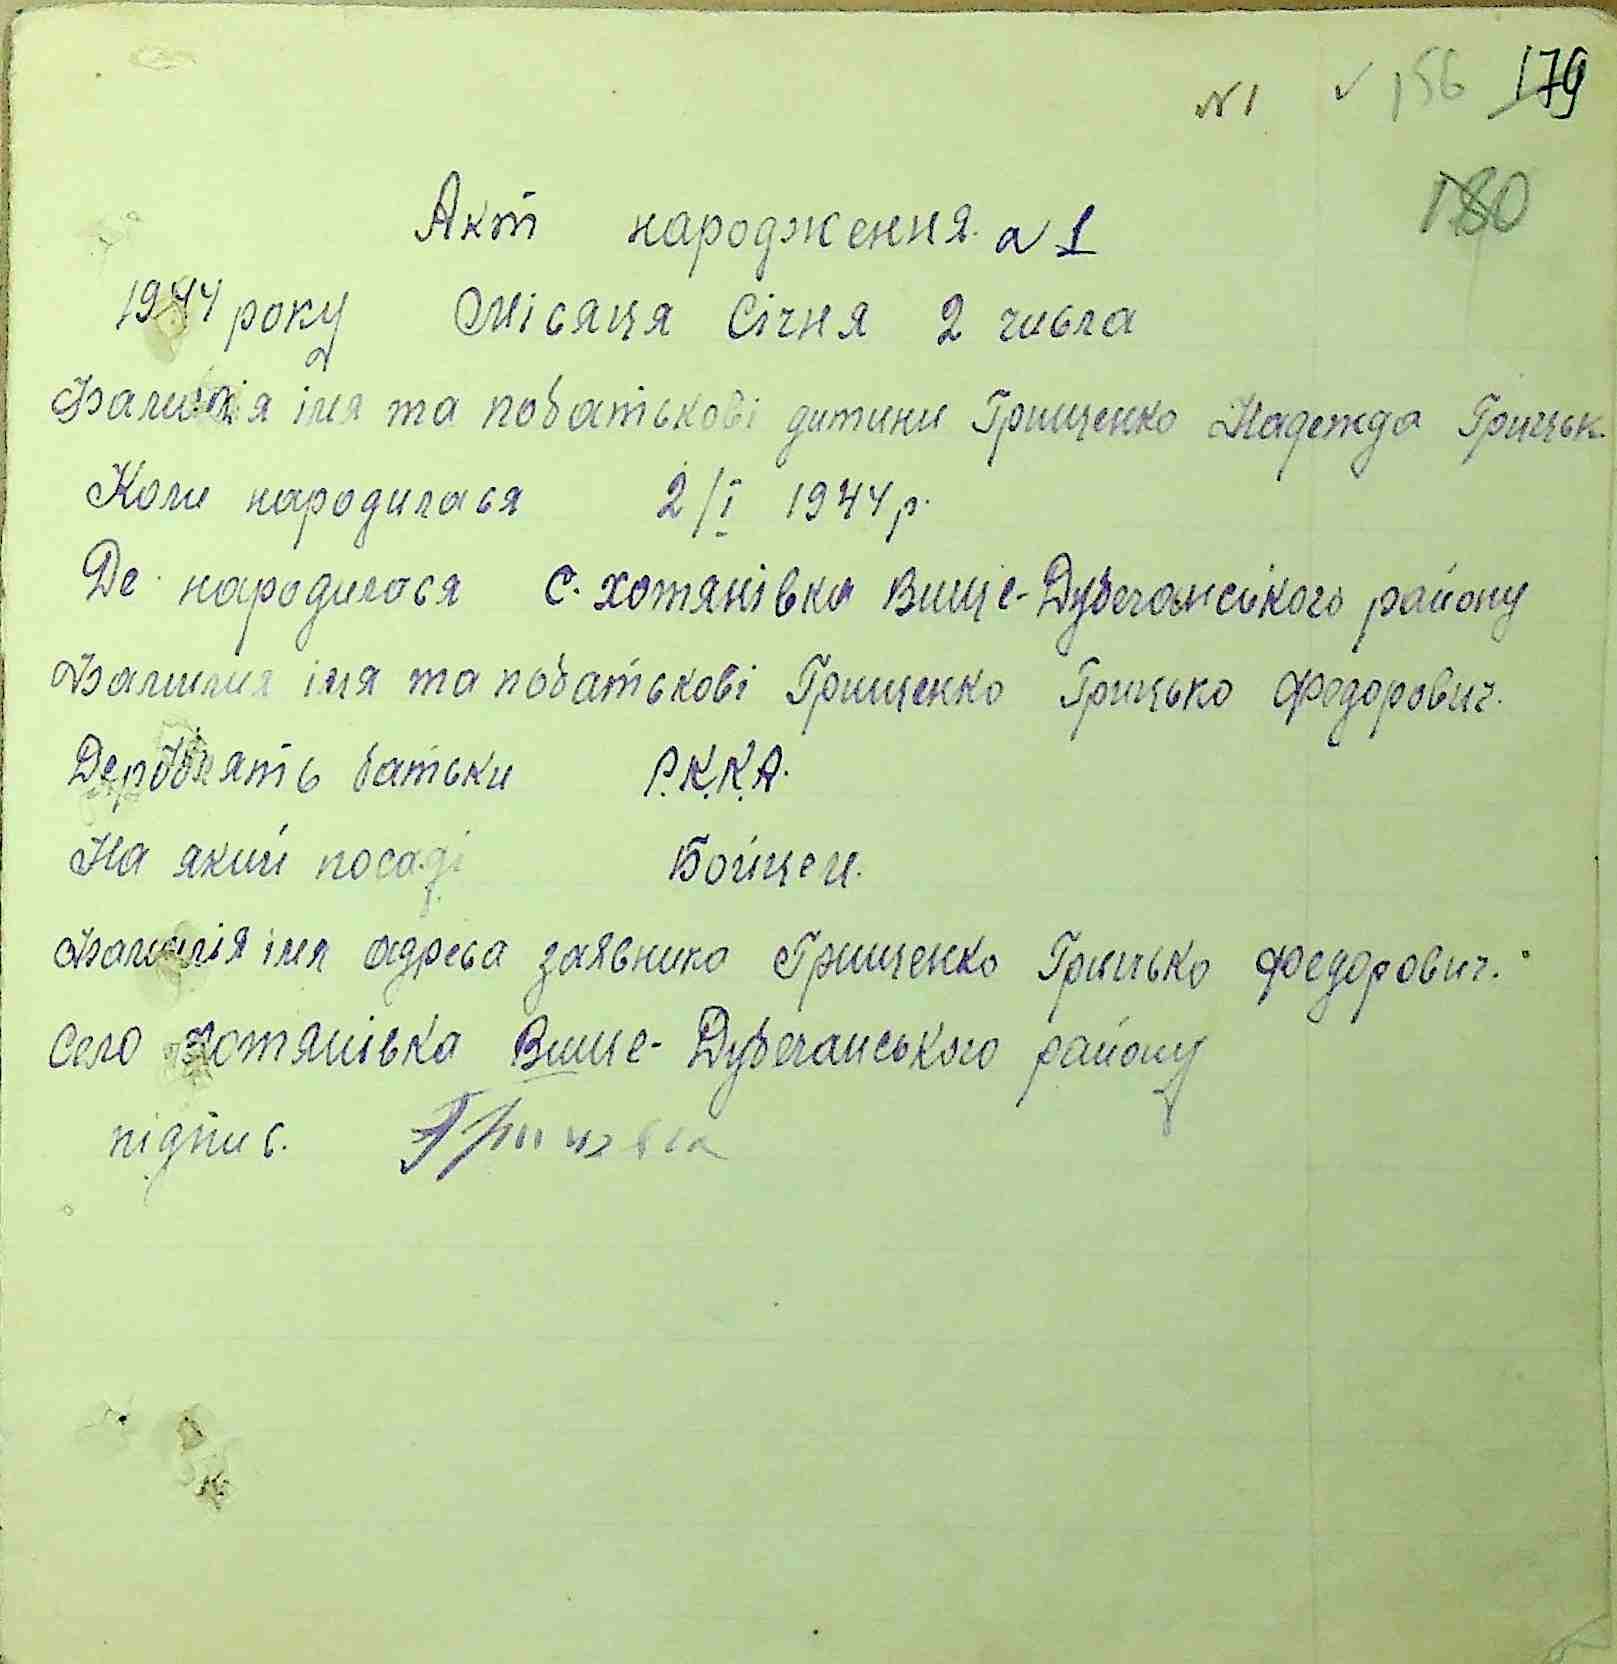 N 1 ✓ 156 179
180
Акт народження N 1
1944 року Місяця Січня 2 числа
Фамилія імя та побатькові дитини Грищенко Надежда Грицьк.
Коли народилася 2/I 1944 р.
Де народилася С. Хотянівка Вище-Дубечанського району
Фамилия імя та побатькові Грищенко Грицько Федорович.
Де роблять батьки Р.К.К.А.
На який посаді Бойцем.
Фамилія імя адреса заявника Грищенко Грицько Федорович.
Село Хотянівка Вище-Дубечанського району
підпис.